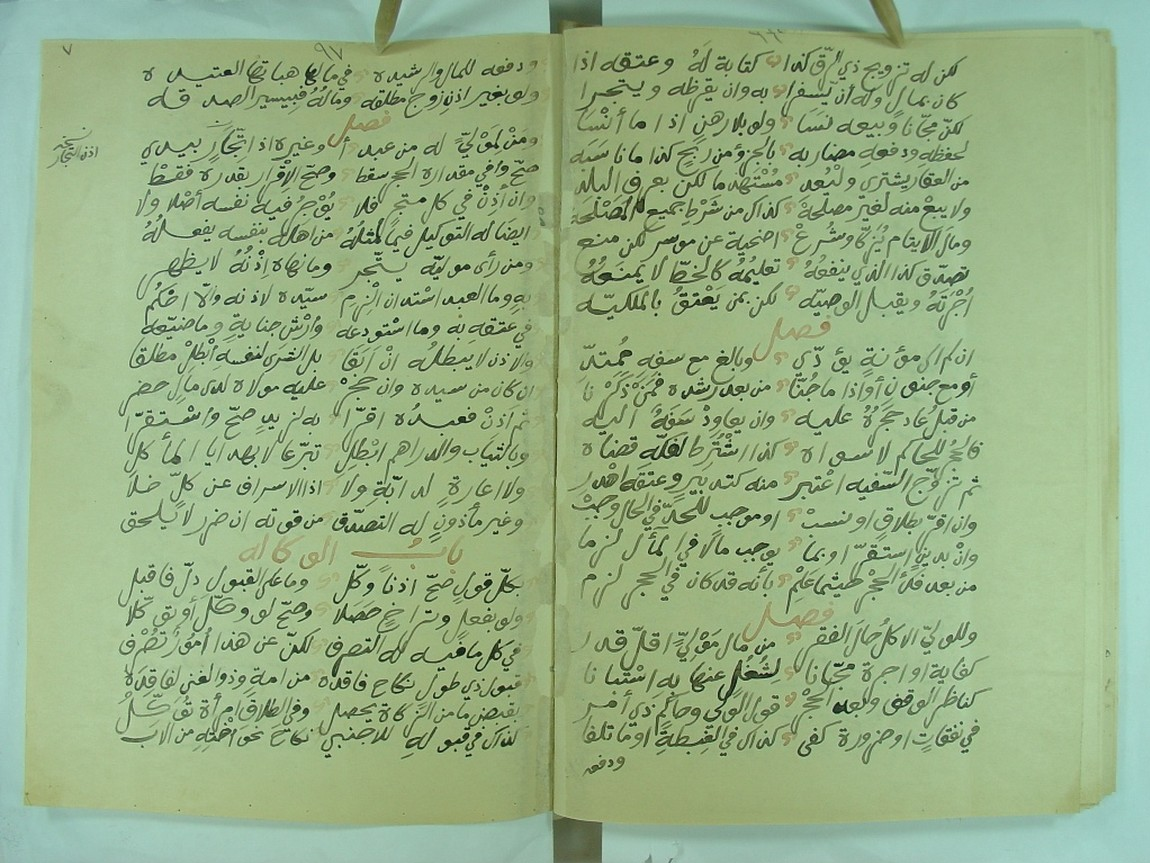 لكن له تزويج ذي الرق كذا كتابة له وعتقه اذا
كان بمال وله أن يسفرا به وان يقرظه ويتجرا
لكن مجانا وبيعه نسا ولو بلا رهن اذا ما أنسا
لحفظه ودفعه مضاربه بالجزؤ من ربح كذا مانا سبه
من العقار يشترى وليعد مستهدما لكن بعرف البلد
ولا يبع منه لغير مصلحة كذاك من شرط جميع المصلحة
ومال الايتام يزكا وشرع اضحية عن موسر لكن منع
تصدق كذا الذي ينفعه تعليمه كالخط لا يمنعه
أجرته ويقبل الوصيه لكن بمن يعتق بالملكيه
فصل
ان لم الى مؤنة يؤدي وبالغ مع سفه ممتد
أو مع جنون أو اذا ما جنا من بعد رشده فمن ذكرنا
من قبل عاد حجره عليه وان يعاود سفه اليه
فالحجر للحاكم لا سواه كذا اشترط لفكه قضاه
ثم تزوج السفيه اعتبر منه كتدبير وعتقه اهدر
وان اقر بطلاق او نسب او موجب للحد في الحال وجب
وان بدين استقر او بما يوجب مالا في المأل لزما
من بعد فك الحجر حيثما علم بأنه قد كان في الحجر لزم
فصل
وللولي الاكل حال الفقر من مال مولي اقل قدر
كفاية او اجرة مجانا لشغل عنها به استبانا
كناظر الوقف وبعد الحجر قول الولي وحاكم ذي أمر
في نفقات او ضرورة كفى كذاك في الغبطة او ما تلفا
ودفعه
٩٧
٧
ودفعه للمال والرشيده في مالها هباتها العتيده
ولو بغير اذن زوج مطلقه وماله فبيسير الصدقه
فصل
ومن لمولي له من عبد أو غيره اذا تجار بيدي
نسخه
اذن اتجار
صح وافي مقداره الحجر سقط وصح الاقرار بقدره فقط
وان أذن في كل متجر فلا يؤجر فيه نفسه أصلا ولا
ايضا له التوكيل فيما مثله من اهله بنفسه يفعله
ومن رأى موليه يتجر وما نهاه اذنه لا يظهر
به وما العبد استدان الزم سيده لاذنه والا احكم
في عتقه به وما استودعه وأرش جناية وما ضيعه
والاذن لا يبطله ان أبقا بل الشرى لنفسه ابطل مطلقا
ان كان من سيده وان حجر عليه مولاه لدى مال حضر
ثم اذن فعبده اقرا به لزيد صح واستقرا
وبالثياب والدراهم ابطل تبرعا لا بهدايا المأكل
ولا اعارة لدابة ولا اذا الاسراف عن كل خلا
وغير مأذون له التصدق من قوته ان ضرر لا يلحق
باب الوكاله
بكل قول صح اذنا وكل وما على القبول دل فاقبل
ولو بفعل وتراخ حصلا وصح لو وكل أو توكلا
في كل ما فيه له التصرف لكن عن هذا أمور تصرف
قبول ذي طول نكاح فاقده من امة وذو الغنى لفاقده
يقبض ما من الزكاة يحصل وفي الطلاق امرأة توكل
كذاك في قبوله للاجنبي نكاح نحو اخته من الاب